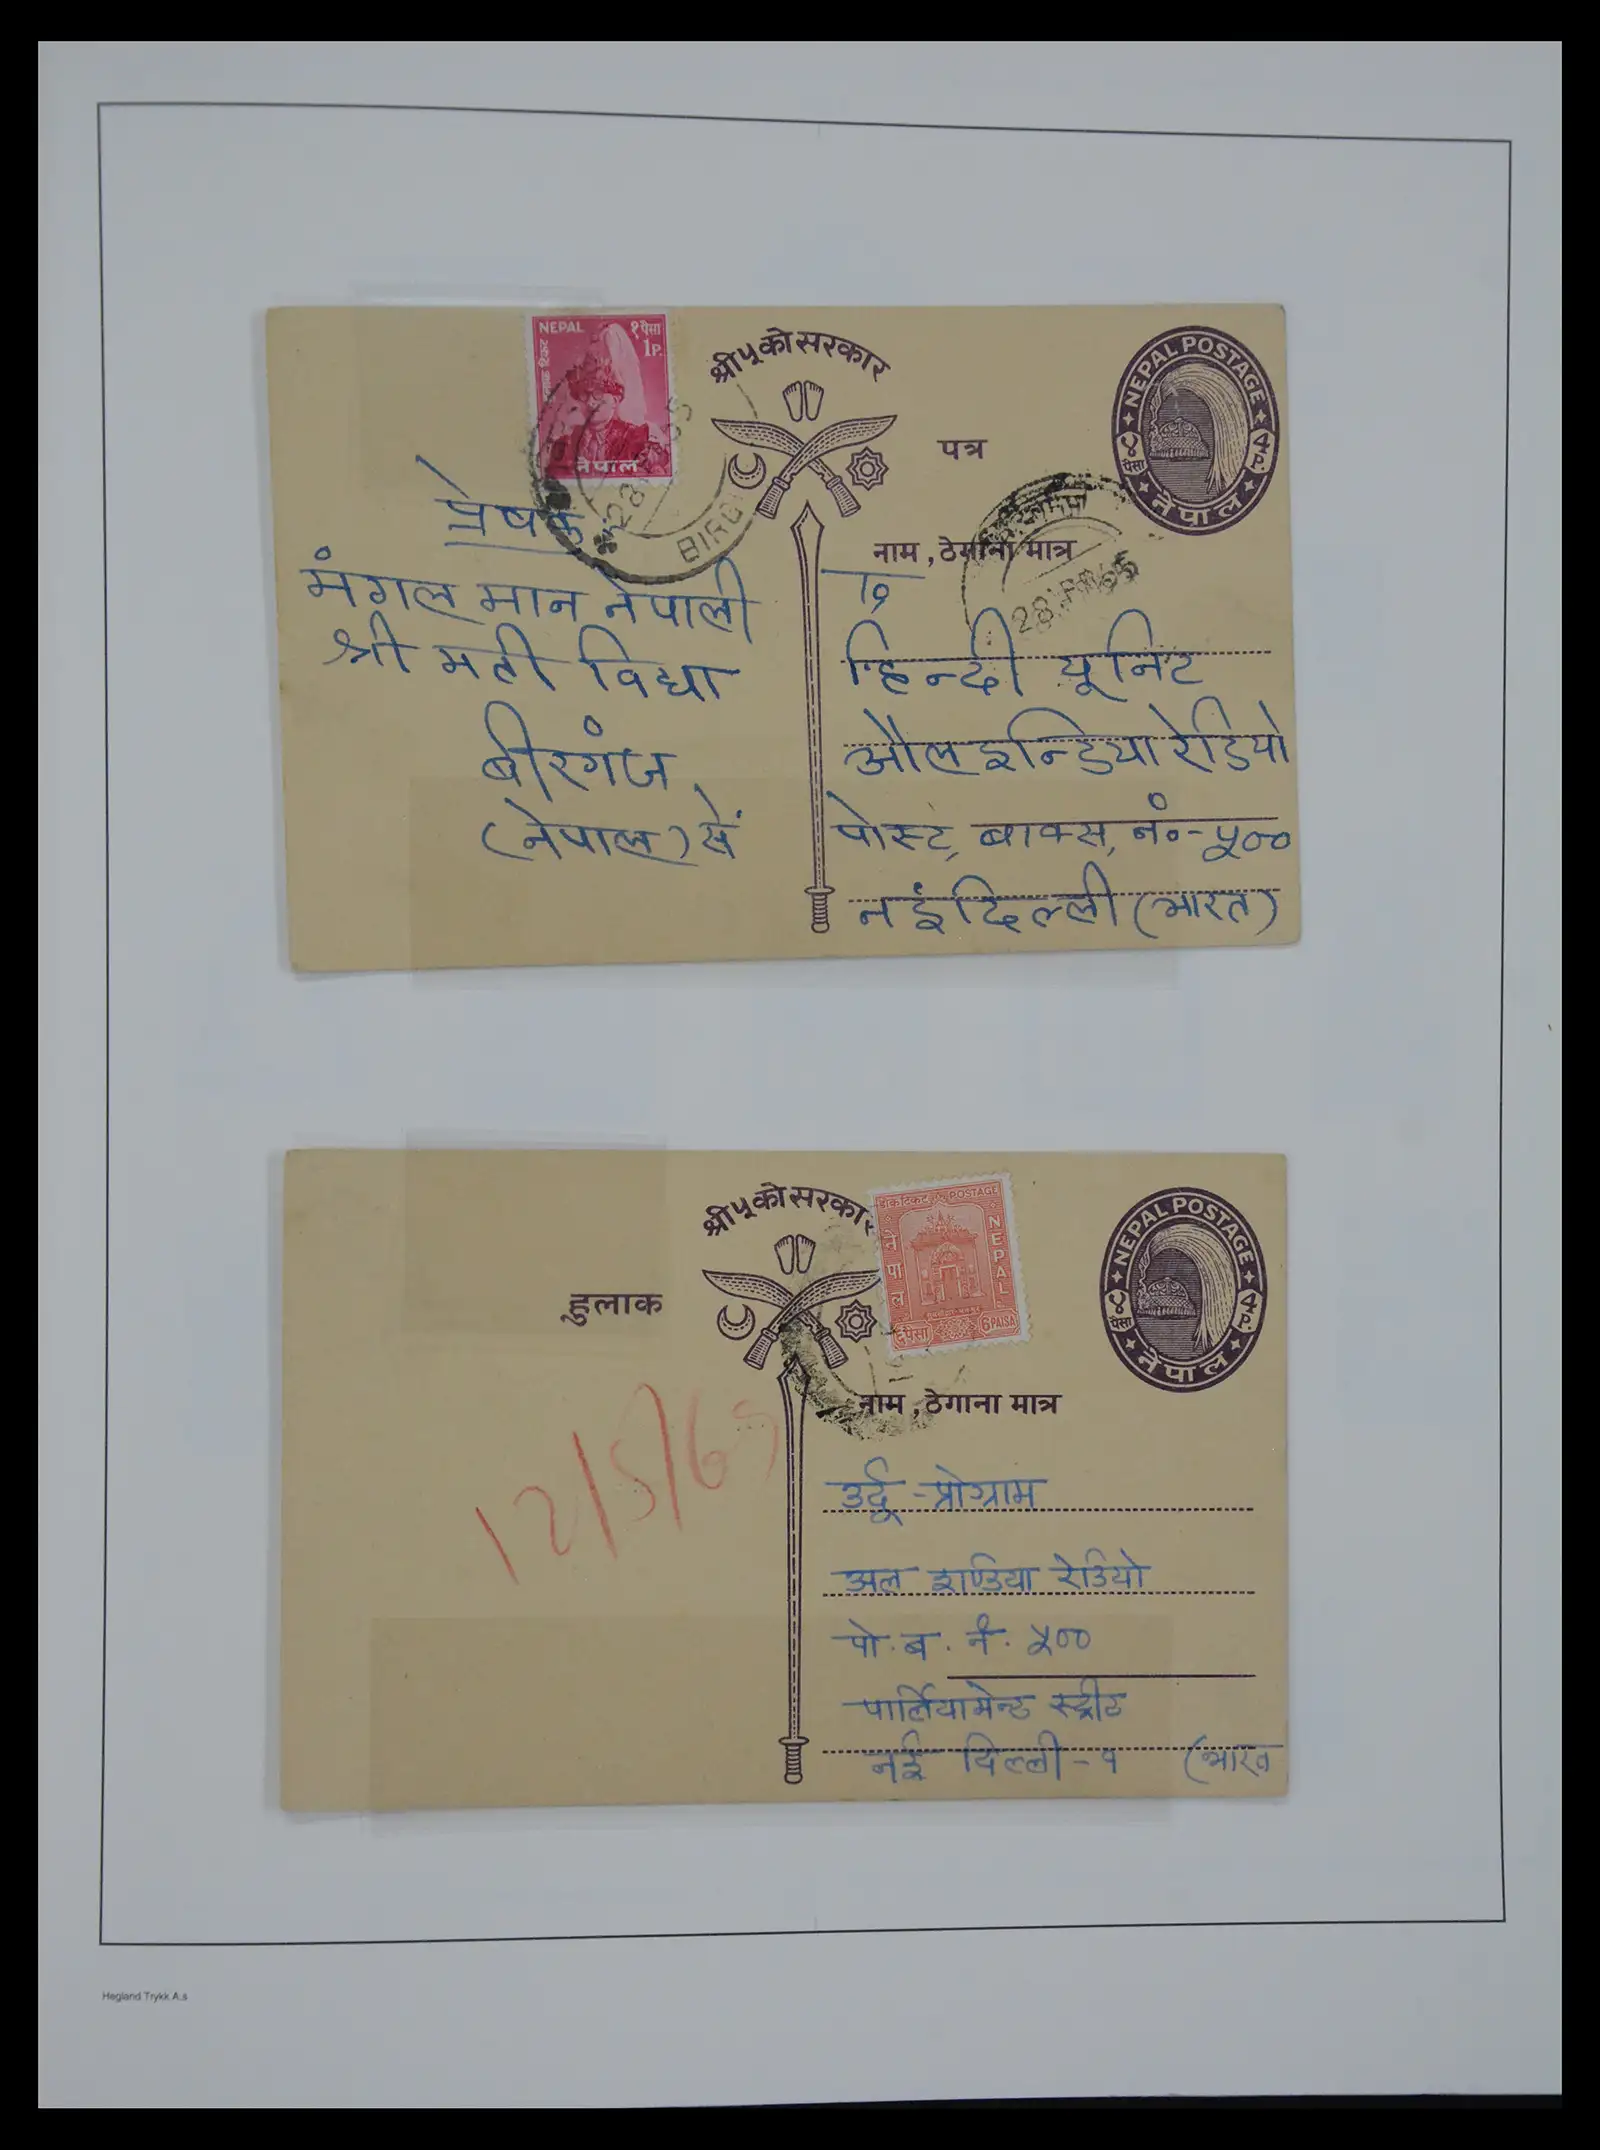 NEPAL १ पैसा
1P.
नेपाल
श्री ५ को सरकार
NEPAL POSTAGE
४ पैसा
4P.
नेपाल
पत्र
नाम , ठेगाना मात्र
28
BIRG
28 FEB 65
प्रेषक
मंगल मान नेपाली
श्री मती विद्या
बीरगंज
(नेपाल) से
हिन्दी यूनिट
औल इन्डिया रेडियो
पोस्ट, बाक्स, नं०-५००
नईदिल्ली (भारत)
श्री ५ को सरकार
POSTAGE
नेपाल
NEPAL
६ पैसा
6 PAISA
NEPAL POSTAGE
४ पैसा
4P.
नेपाल
हुलाक
नाम , ठेगाना मात्र
12/5/65
उर्दू - प्रोग्राम
अल इण्डिया रेडियो
पो. ब. नं. ५००
पार्लियामेन्ट स्ट्रीट
नई दिल्ली - १ (भारत
Hegland Trykk A.s